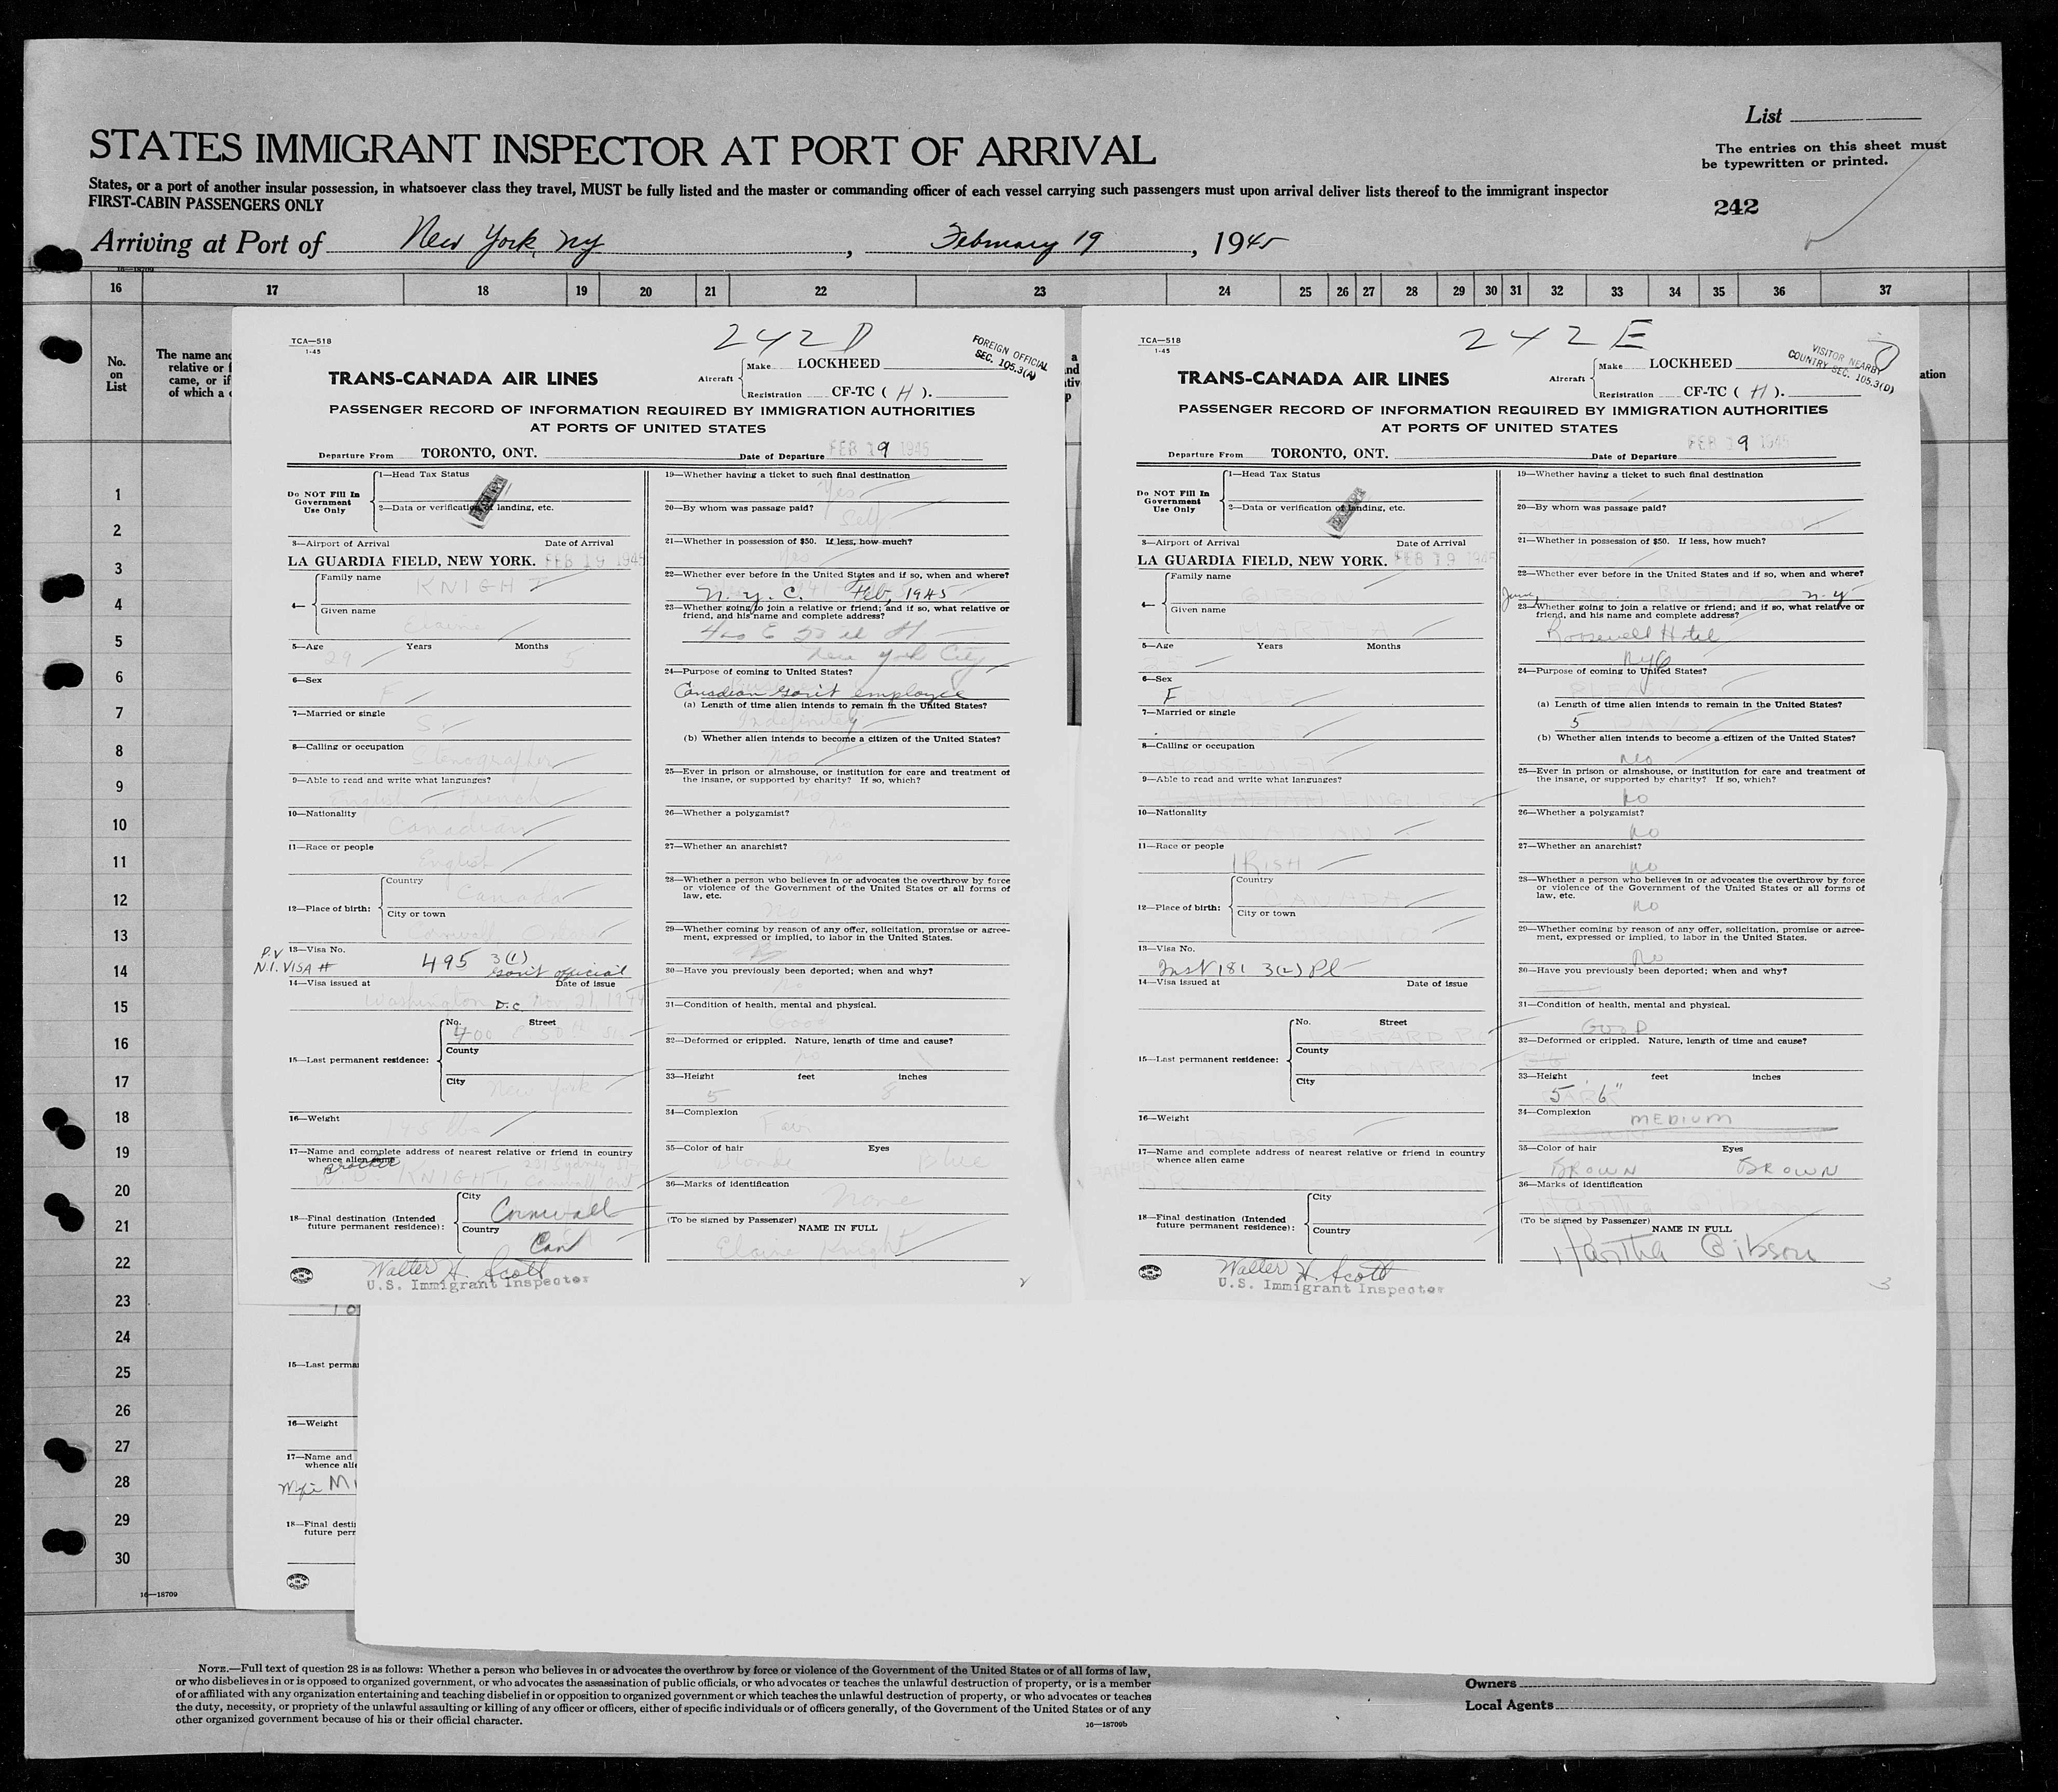 List
STATES IMMIGRANT INSPECTOR AT PORT OF ARRIVAL
The entries on this sheet must
be typewritten or printed.
States, or a port of another insular possession, in whatsoever class they travel, MUST be fully listed and the master or commanding officer of each vessel carrying such passengers must upon arrival deliver lists thereof to the immigrant inspector
FIRST-CABIN PASSENGERS ONLY
242
Arriving at Port of New York, ny, February 19, 1945
16—18709
16 17 18 19 20 21 22 23 24 25 26 27 28 29 30 31 32 33 34 35 36 37
No.
on
List
The name and
relative or
came, or if
of which a
1
2
3
4
5
6
7
8
9
10
11
12
13
14
15
16
17
18
19
20
21
22
23
24
25
26
27
28
29
30
16—18709
242 D
TCA—518
1-45
FOREIGN OFFICIAL
SEC. 105.3(A)
TRANS-CANADA AIR LINES
Aircraft
Make LOCKHEED
Registration CF-TC ( H ).
PASSENGER RECORD OF INFORMATION REQUIRED BY IMMIGRATION AUTHORITIES
AT PORTS OF UNITED STATES
Departure From TORONTO, ONT. Date of Departure FEB 19 1945
Do NOT Fill In
Government
Use Only
1—Head Tax Status
2—Data or verification of landing, etc.
3—Airport of Arrival Date of Arrival
LA GUARDIA FIELD, NEW YORK. FEB 19 1945
4—
Family name
KNIGHT
Given name
Elaine
5—Age Years Months
29 5
6—Sex
F
7—Married or single
S
8—Calling or occupation
Stenographer
9—Able to read and write what languages?
English - French
10—Nationality
Canadian
11—Race or people
English
12—Place of birth:
Country
Canada
City or town
Cornwall
P.V
N.I. VISA #
13—Visa No.
495 3(1)
Gov't official
14—Visa issued at Date of issue
Washington D.C. Nov 21, 1944
15—Last permanent residence:
No. Street
400
County
City
New York
16—Weight
145 lbs
17—Name and complete address of nearest relative or friend in country
whence alien came
Brother
KNIGHT, 231 Sydney St.
Cornwall Ont
18—Final destination (Intended
future permanent residence):
City
Cornwall
Country
Can
Walter H. Scott
U.S. Immigrant Inspector
19—Whether having a ticket to such final destination
Yes
20—By whom was passage paid?
Self
21—Whether in possession of $50. If less, how much?
Yes
22—Whether ever before in the United States and if so, when and where?
N.Y.C. Feb, 1945
23—Whether going to join a relative or friend; and if so, what relative or
friend, and his name and complete address?
New York City
24—Purpose of coming to United States?
Canadian Gov't employee
(a) Length of time alien intends to remain in the United States?
Indefinitely
(b) Whether alien intends to become a citizen of the United States?
No
25—Ever in prison or almshouse, or institution for care and treatment of
the insane, or supported by charity? If so, which?
No
26—Whether a polygamist?
No
27—Whether an anarchist?
no
28—Whether a person who believes in or advocates the overthrow by force
or violence of the Government of the United States or all forms of
law, etc.
No
29—Whether coming by reason of any offer, solicitation, promise or agree-
ment, expressed or implied, to labor in the United States.
30—Have you previously been deported; when and why?
no
31—Condition of health, mental and physical.
Good
32—Deformed or crippled. Nature, length of time and cause?
no
33—Height feet inches
5 8
34—Complexion
Fair
35—Color of hair Eyes
Blonde Blue
36—Marks of identification
None
(To be signed by Passenger)
NAME IN FULL
Elaine Knight
2
242 E
TCA—518
1-45
VISITOR NEARBY
COUNTRY SEC. 105.3(D)
TRANS-CANADA AIR LINES
Aircraft
Make LOCKHEED
Registration CF-TC ( H ).
PASSENGER RECORD OF INFORMATION REQUIRED BY IMMIGRATION AUTHORITIES
AT PORTS OF UNITED STATES
Departure From TORONTO, ONT. Date of Departure FEB 19 1945
Do NOT Fill In
Government
Use Only
1—Head Tax Status
2—Data or verification of landing, etc.
3—Airport of Arrival Date of Arrival
LA GUARDIA FIELD, NEW YORK. FEB 19 1945
4—
Family name
Given name
5—Age Years Months
6—Sex
F
7—Married or single
8—Calling or occupation
9—Able to read and write what languages?
ENGLISH
10—Nationality
CANADIAN
11—Race or people
IRISH
12—Place of birth:
Country
CANADA
City or town
13—Visa No.
Inst 181 3(2) Pl
14—Visa issued at Date of issue
15—Last permanent residence:
No. Street
County
ONTARIO
City
16—Weight
LBS
17—Name and complete address of nearest relative or friend in country
whence alien came
18—Final destination (Intended
future permanent residence):
City
Country
Walter H. Scott
U.S. Immigrant Inspector
19—Whether having a ticket to such final destination
20—By whom was passage paid?
21—Whether in possession of $50. If less, how much?
22—Whether ever before in the United States and if so, when and where?
June, N.Y
23—Whether going to join a relative or friend; and if so, what relative or
friend, and his name and complete address?
Roosevelt Hotel
NYC
24—Purpose of coming to United States?
(a) Length of time alien intends to remain in the United States?
5
(b) Whether alien intends to become a citizen of the United States?
No
25—Ever in prison or almshouse, or institution for care and treatment of
the insane, or supported by charity? If so, which?
no
26—Whether a polygamist?
no
27—Whether an anarchist?
no
28—Whether a person who believes in or advocates the overthrow by force
or violence of the Government of the United States or all forms of
law, etc.
no
29—Whether coming by reason of any offer, solicitation, promise or agree-
ment, expressed or implied, to labor in the United States.
no
30—Have you previously been deported; when and why?
31—Condition of health, mental and physical.
GOOD
32—Deformed or crippled. Nature, length of time and cause?
33—Height feet inches
5' 6"
34—Complexion
MEDIUM
35—Color of hair Eyes
BROWN BROWN
36—Marks of identification
(To be signed by Passenger)
NAME IN FULL
Martha Gibson
3
15—Last perma
16—Weight
17—Name and
whence alie
18—Final desti
future perr
NOTE.—Full text of question 28 is as follows: Whether a person who believes in or advocates the overthrow by force or violence of the Government of the United States or of all forms of law,
or who disbelieves in or is opposed to organized government, or who advocates the assassination of public officials, or who advocates or teaches the unlawful destruction of property, or is a member
of or affiliated with any organization entertaining and teaching disbelief in or opposition to organized government or which teaches the unlawful destruction of property, or who advocates or teaches
the duty, necessity, or propriety of the unlawful assaulting or killing of any officer or officers, either of specific individuals or of officers generally, of the Government of the United States or of any
other organized government because of his or their official character.
16—18709b
Owners
Local Agents